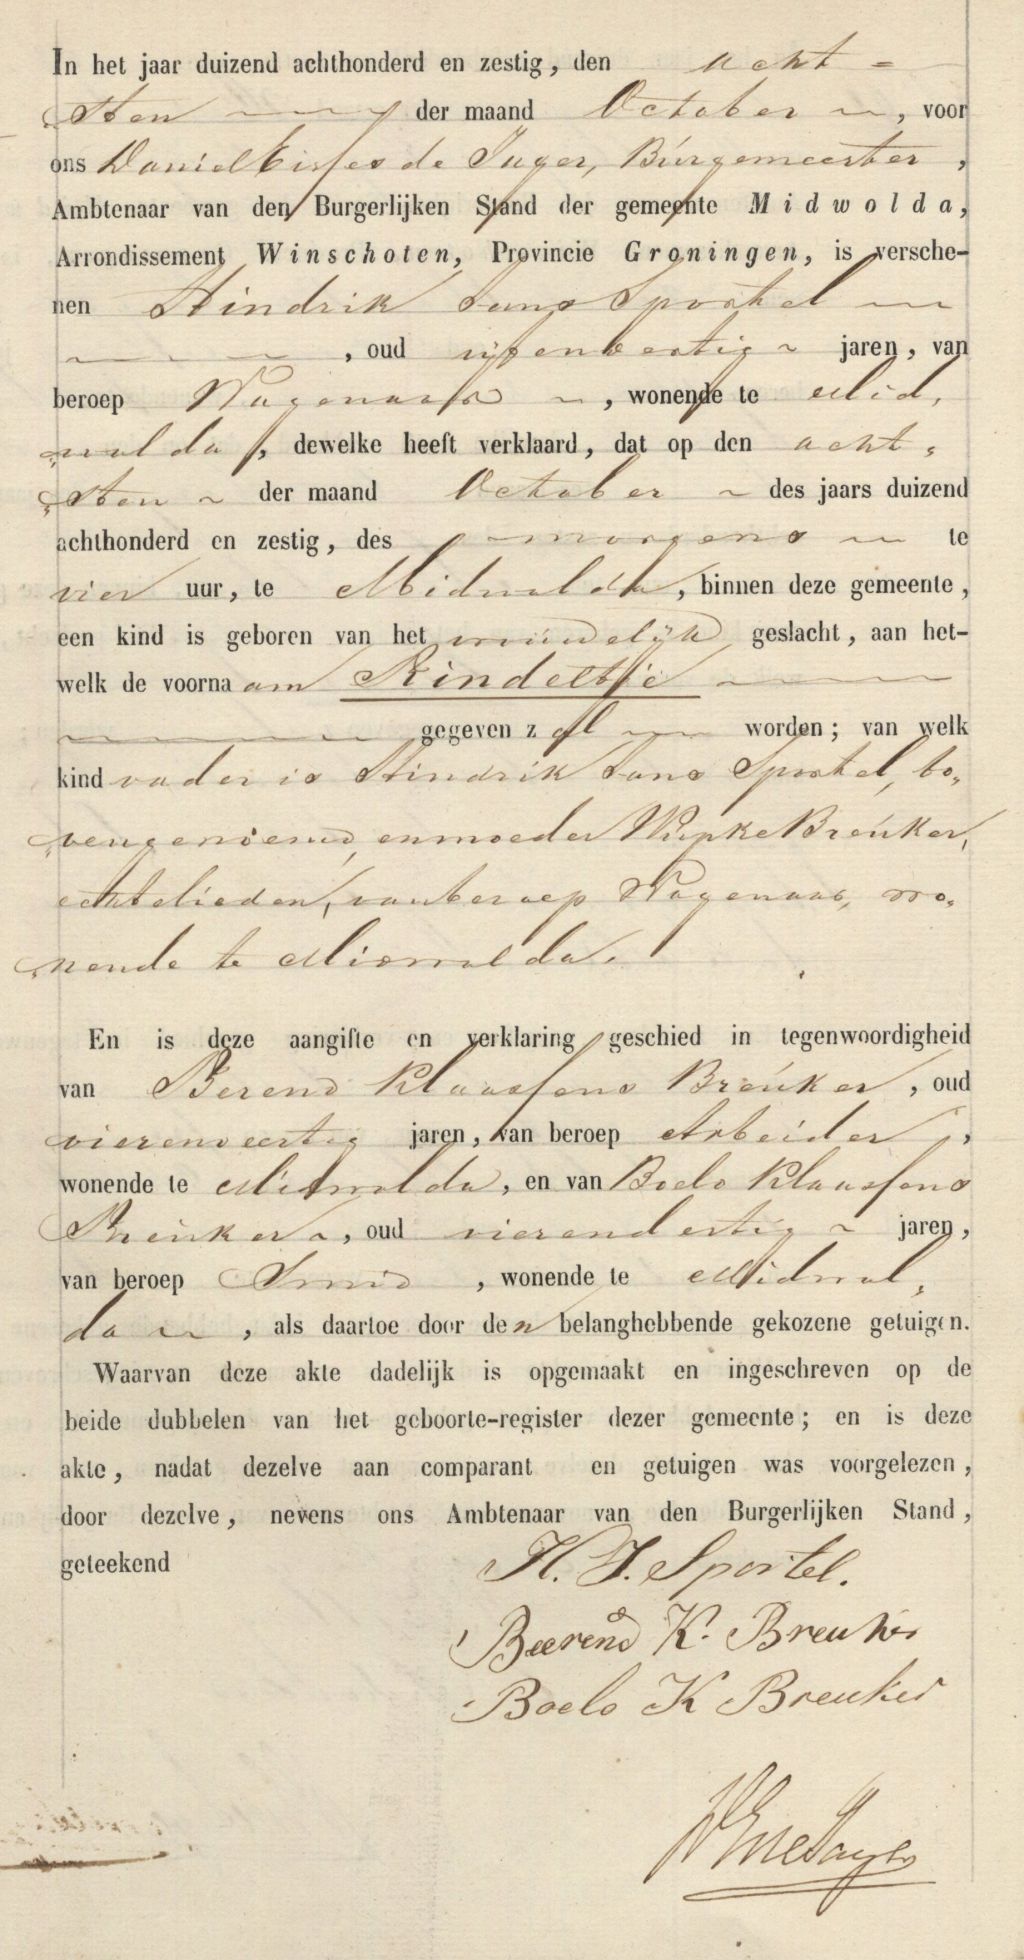 In het jaar duizend achthonderd en zestig, den acht =
sten der maand October, voor
ons Daniel Eisses de Jager, Burgemeester,
Ambtenaar van den Burgerlijken Stand der gemeente Midwolda,
Arrondissement Winschoten, Provincie Groningen, is versche-
nen Hindrik Jans Sportel
, oud vijfenveertig jaren, van
beroep Wagenaar, wonende te Mid„
„wolda, dewelke heeft verklaard, dat op den acht„
„sten der maand October des jaars duizend
achthonderd en zestig, des morgens te
vier uur, te Midwolda, binnen deze gemeente,
een kind is geboren van het vrouwelijk geslacht, aan het-
welk de voornaam
gegeven zal worden; van welk
kind vader is Hindrik Jans Sportel, bo„
„vengenoemd, en moeder Wupke Breuker,
echtelieden, van beroep Wagenaar, wo„
„nende te Midwolda.
En is deze aangifte en verklaring geschied in tegenwoordigheid
van Berend Klaassens Breuker, oud
vierenveertig jaren, van beroep Arbeider,
wonende te Midwolda, en van Boelo Klaassens
Breuker, oud vierendertig jaren,
van beroep Smid, wonende te Midwol„
da, als daartoe door den belanghebbende gekozene getuigen.
Waarvan deze akte dadelijk is opgemaakt en ingeschreven op de
beide dubbelen van het geboorte-register dezer gemeente; en is deze
akte, nadat dezelve aan comparant en getuigen was voorgelezen,
door dezelve, nevens ons Ambtenaar van den Burgerlijken Stand,
geteekend H. J. Sportel.
Beerend K. Breuker
Boelo K Breuker
DEdeJager